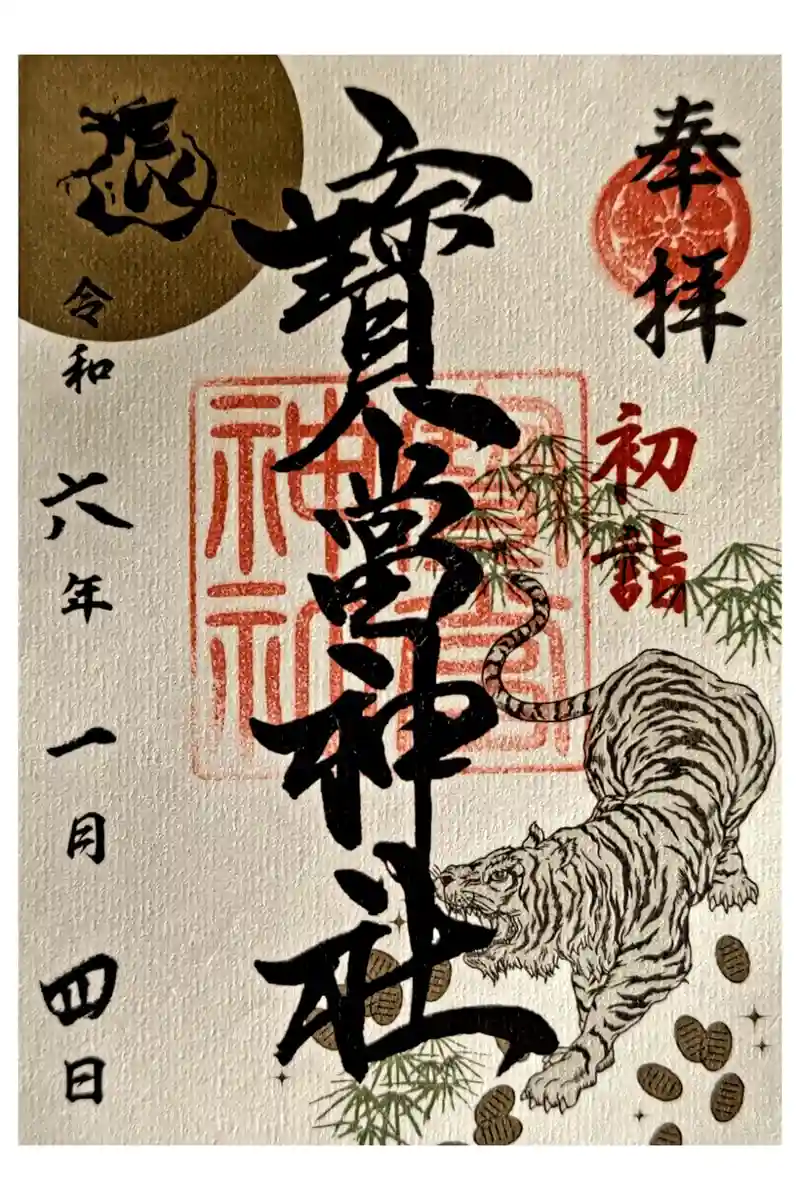 奉拝
初詣
寳當神社
寳當神社
辰
令和六年一月四日